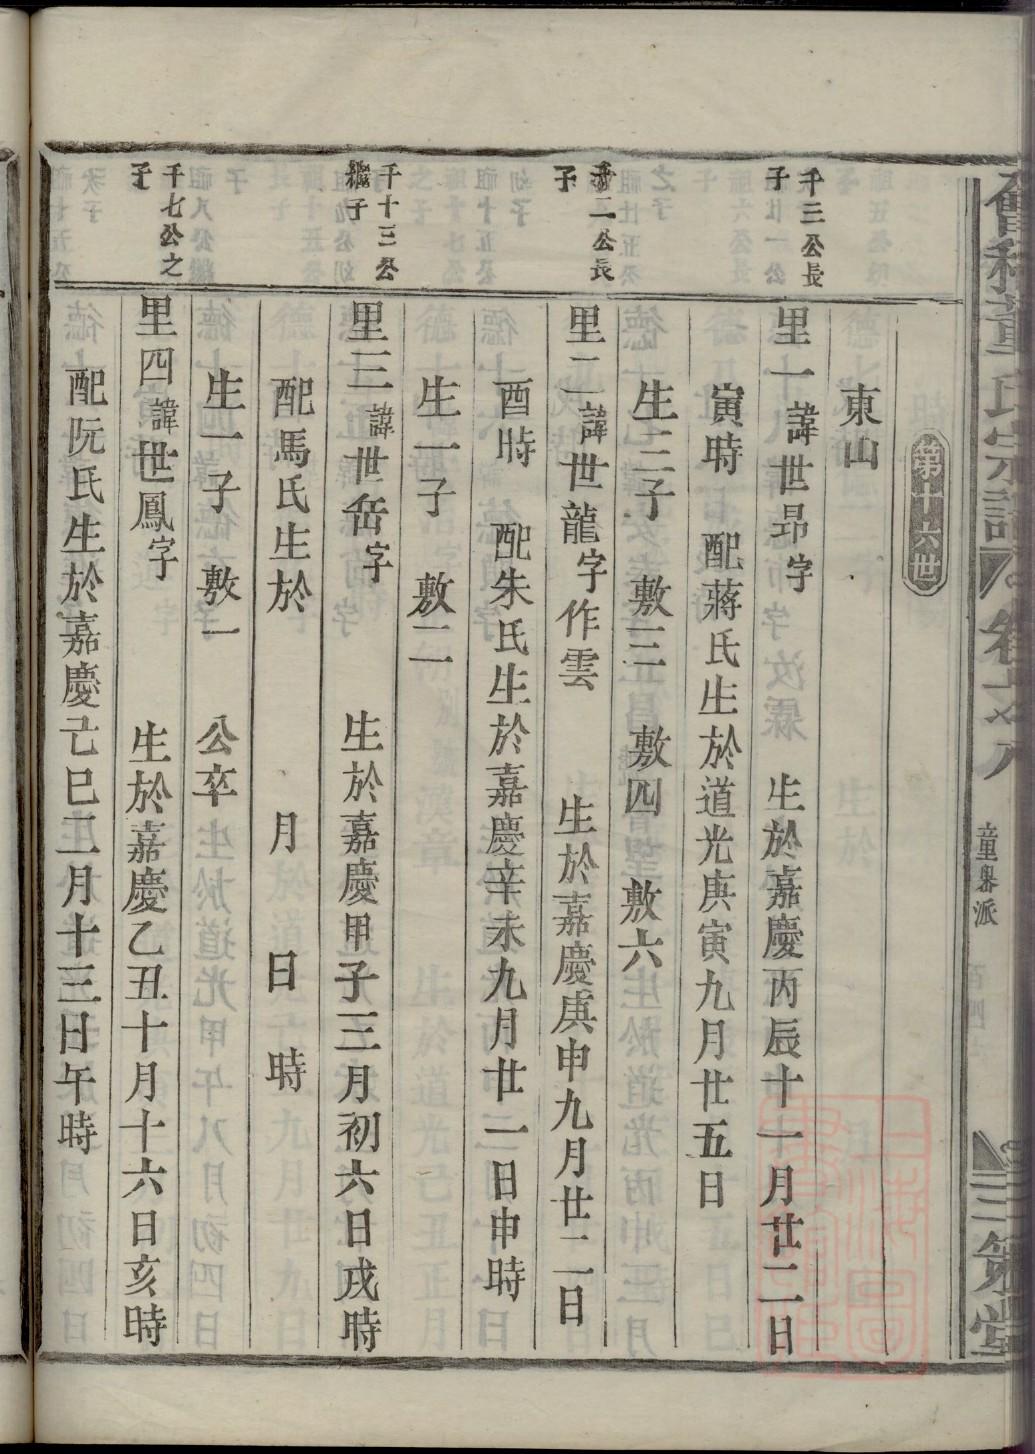 會稽董氏宗譜 卷十八 童墅派 三策堂
第十六世
東山
千三公長子
里一諱世昂字 生於嘉慶丙辰十一月廿二日
寅時 配蔣氏生於道光庚寅九月廿五日
生三子 敷三 敷四 敷六
千二公長子
里二諱世龍字作雲 生於嘉慶庚申九月廿二日
酉時 配朱氏生於嘉慶辛未九月廿二日申時
生一子 敷二
千十三公繼子
里三諱世岳字 生於嘉慶甲子三月初六日戌時
配馬氏生於 月 日 時
生一子 敷一 公卒
千七公之子
里四諱世鳳字 生於嘉慶乙丑十月十六日亥時
配阮氏生於嘉慶己巳二月十三日午時